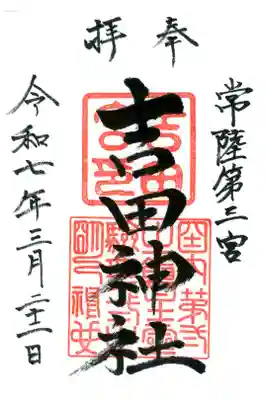 奉拝
常陸第三宮
吉田神社
令和七年三月二十二日